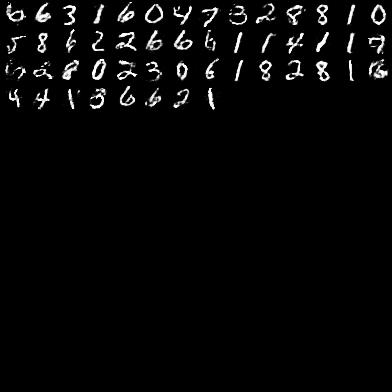 6 6 3 1 6 0 4 7 3 2 8 8 1 0
5 8 6 2 2 6 6 6 1 1 4 1 1 7
2 8 0 2 3 0 6 1 8 2 8 1
4 4 1 3 6 6 2 1